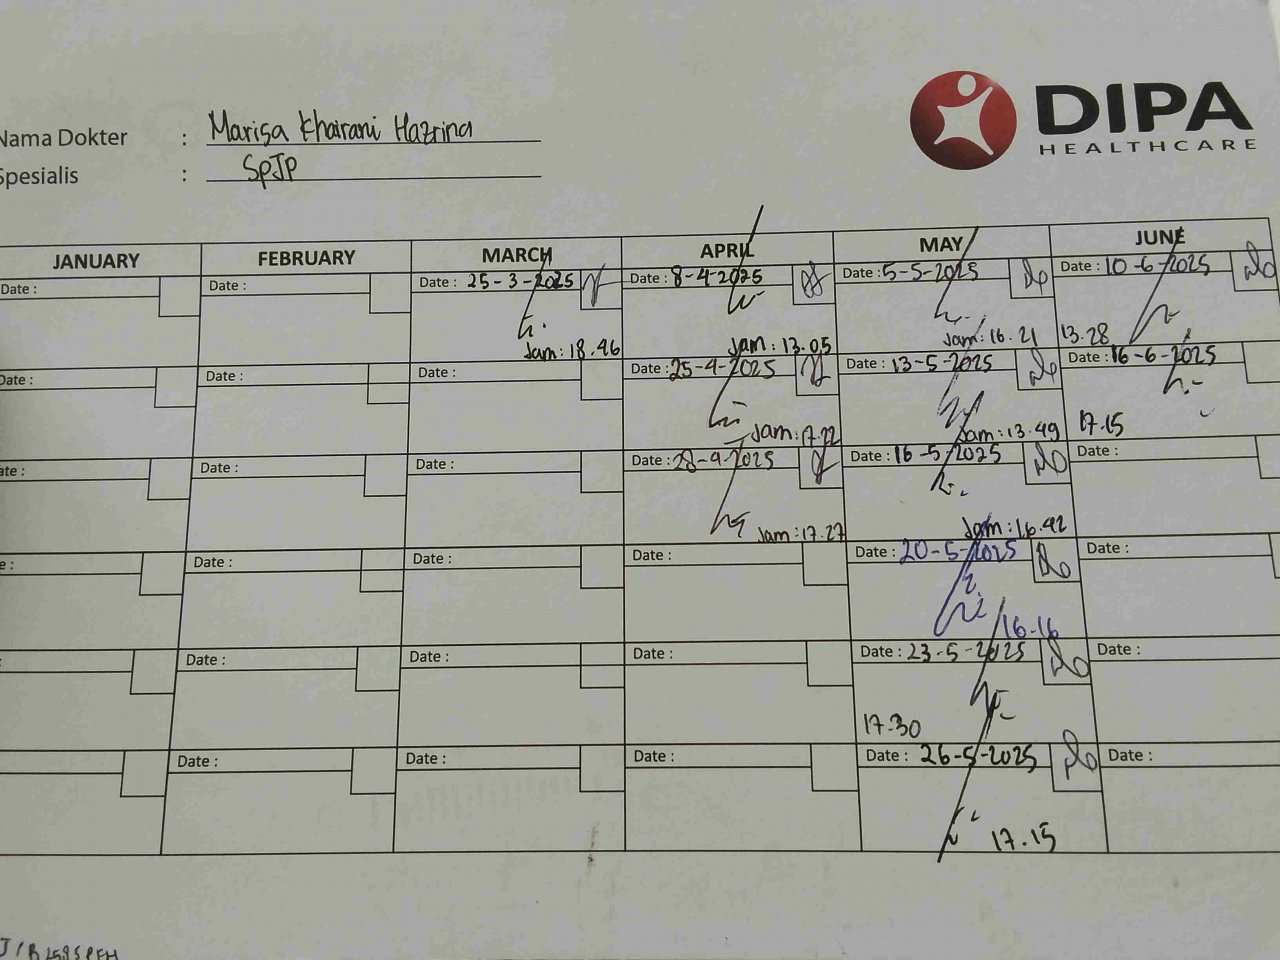 DIPA
HEALTHCARE
Nama Dokter : Marisa Khairani Hazrina
Spesialis : SpJP
JANUARY FEBRUARY MARCH APRIL MAY JUNE
Date : Date : Date : 25-3-2025 Date : 8-4-2025 Date : 5-5-2025 Date : 10-6-2025
Jam: 18.46 Jam: 13.05 Jam: 16.21 13.28
Date : Date : Date : Date : 25-4-2025 Date : 13-5-2025 Date : 16-6-2025
Jam: 17.22 Jam: 13.49 17.15
ate : Date : Date : Date : 28-4-2025 Date : 16-5-2025 Date :
Jam: 17.27 Jam: 16.42
e : Date : Date : Date : Date : 20-5-2025 Date :
16-16
: Date : Date : Date : Date : 23-5-2025 Date :
17.30
Date : Date : Date : Date : 26-5-2025 Date :
17.15